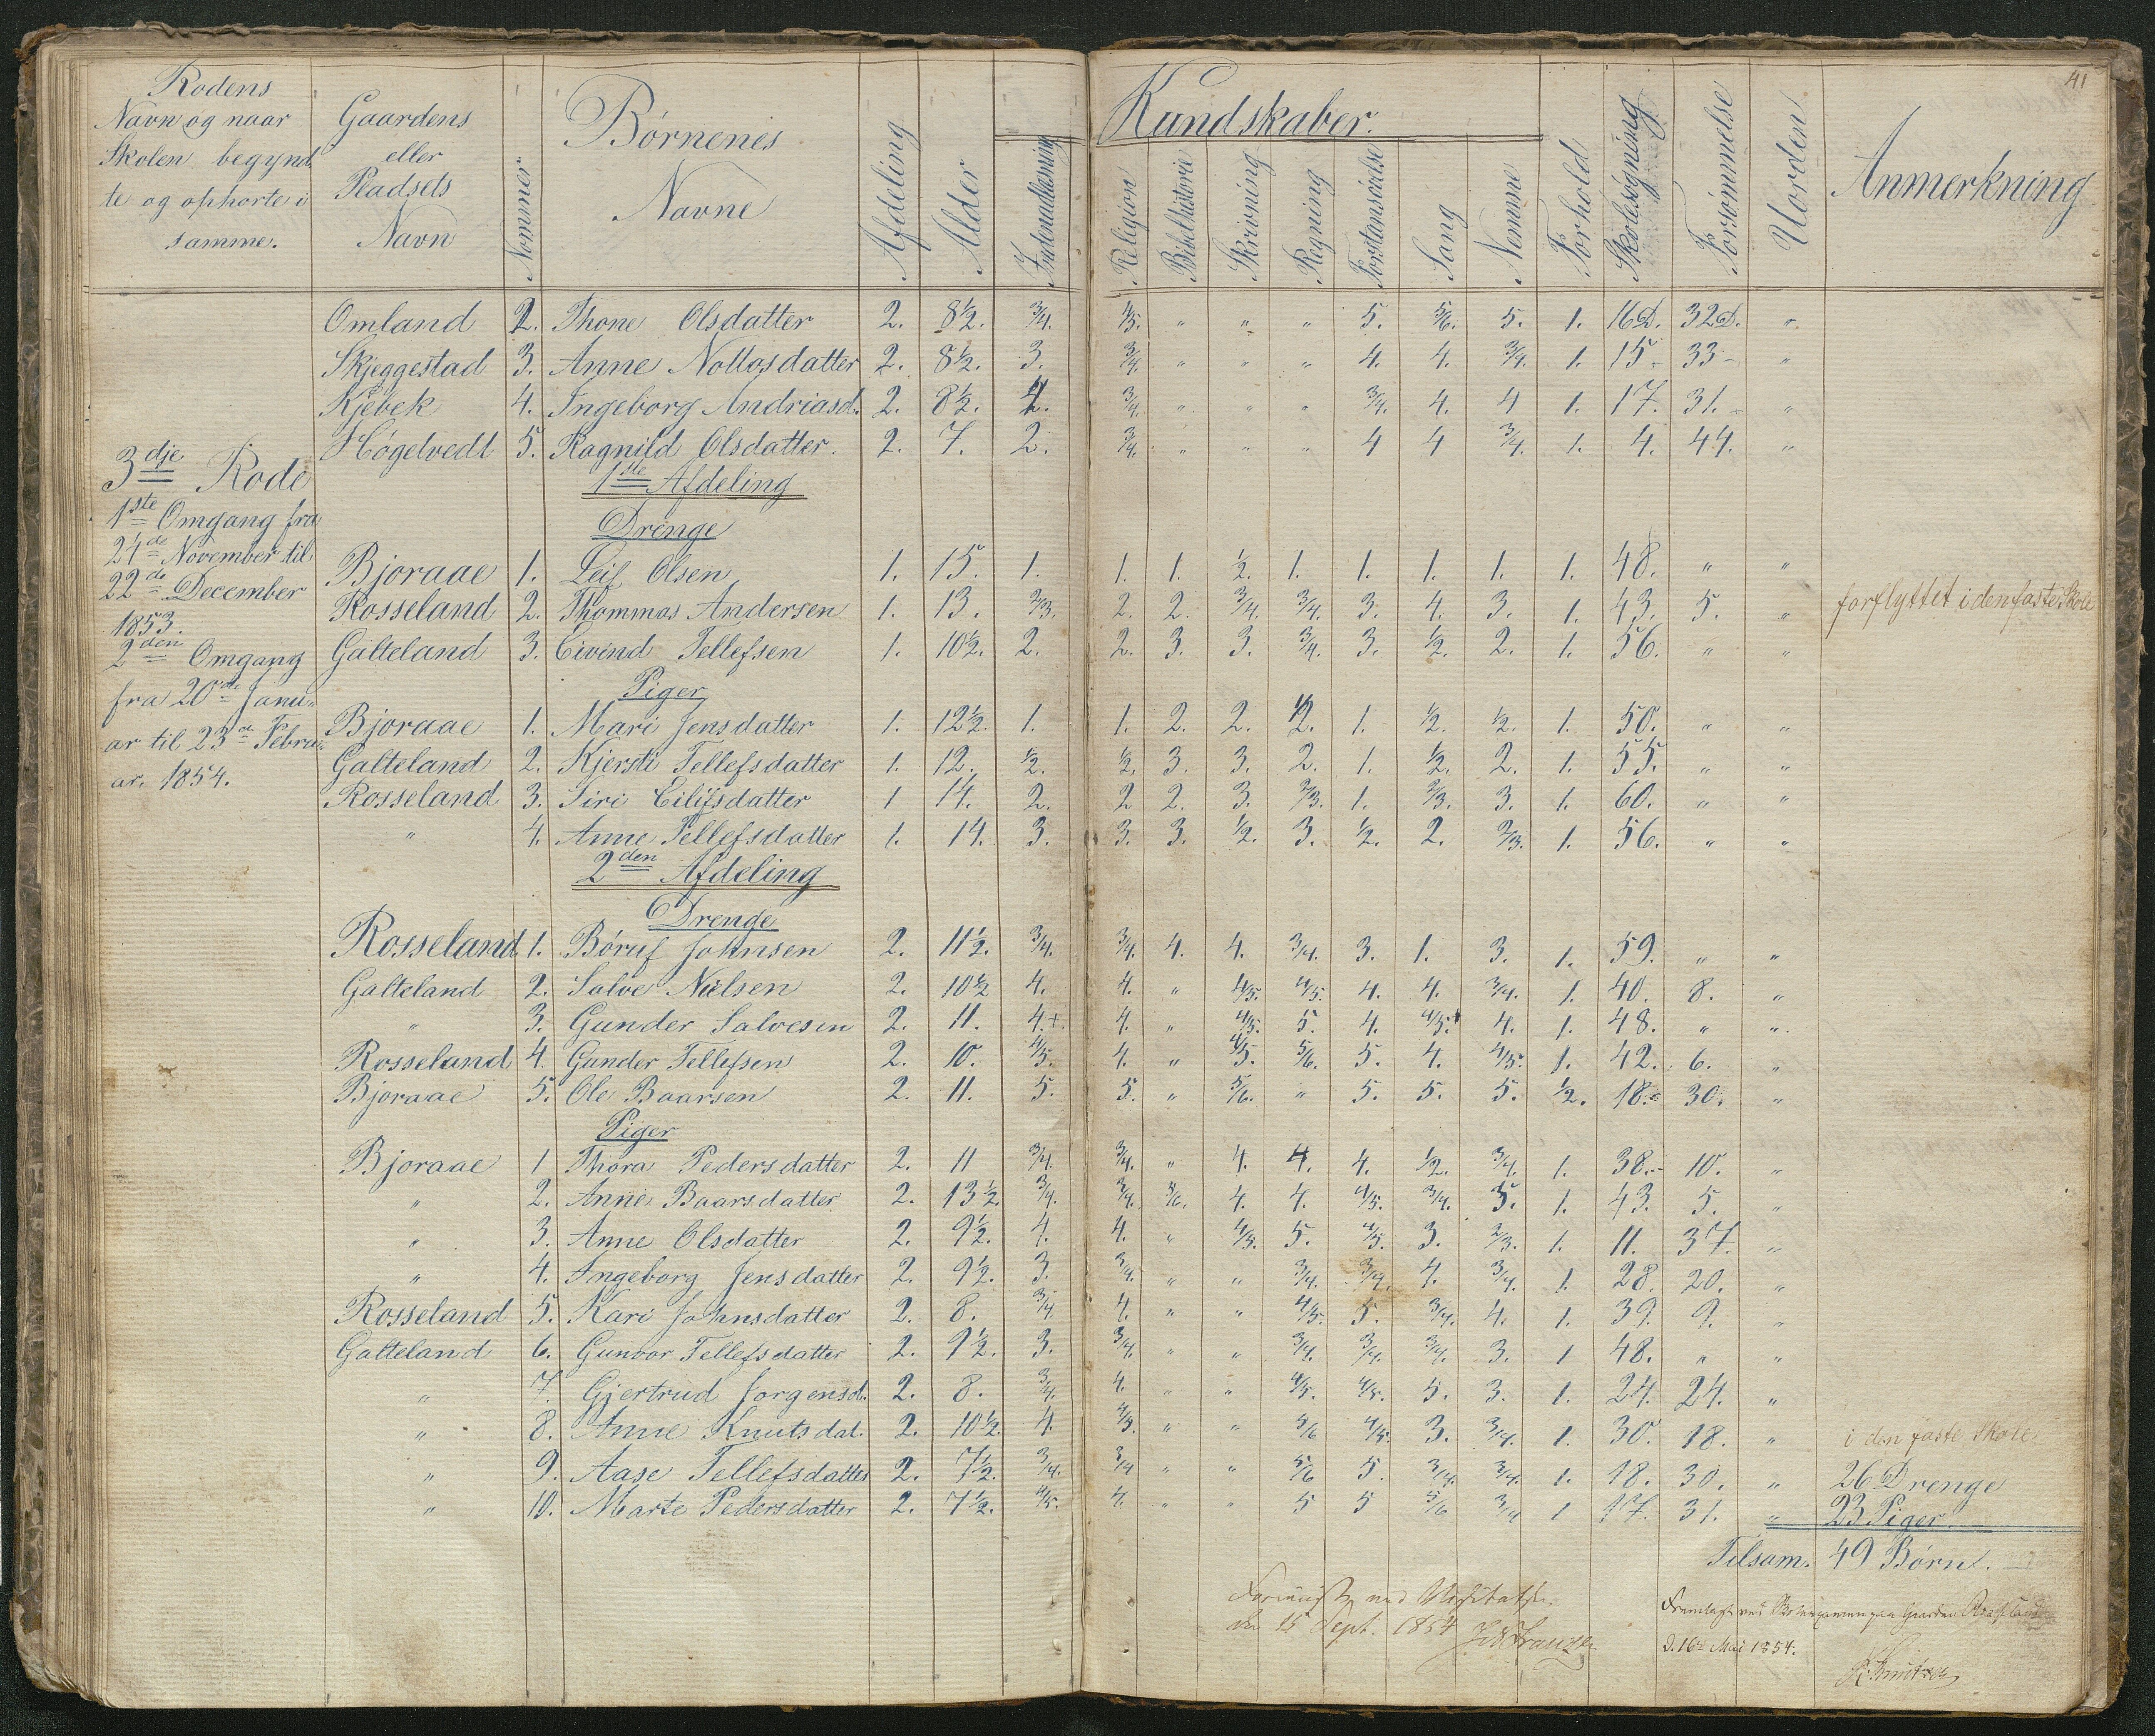 41
Rodens
Navn og naar
Skolen begynd
te og ophørte i
samme.
Gaardens
eller
Pladsets
Navn
Nommer
Børnenes
Navne
Afdeling
Alder
Indenadlæsning
Kundskaber.
Religion
Bibelhistorie
Skrivning
Regning
Forstandsøvelse
Sang
Nemme
Forhold
Skolesøgning
Forsømmelse
Uorden
Anmerkning
Omland 2. Thone Olsdatter 2. 8½. ¾. 4/5. " " " 5. 5/6. 5. 1. 16D. 32D. "
Skjeggestad 3. Anne Nottosdatter 2. 8½. 3. ¾. " " " 4. 4. ¾. 1. 15- 33- "
Kjebek 4. Ingeborg Andriasd. 2. 8½. 4. ¾. " " " ¾. 4. 4 1. 17. 31.- "
Høgelvedt 5. Ragnild Olsdatter. 2. 7. 2. ¾. " " " 4 4 ¾. 1. 4. 44. "
3dje Rode
1ste Omgang fra
24de November til
22de December
1853.
2den Omgang
fra 20de Janu-
ar til 23de Febru-
ar. 1854.
1ste Afdeling
Drenge
Bjoraae 1. Leif Olsen 1. 15. 1. 1. 1. ½. 1. 1. 1. 1. 1. 48. " "
Rosseland 2. Thommas Andersen 1. 13. 2/3. 2. 2. ¾. ¾. 3. 4. 3. 1. 43. 5. " forflyttet i den faste Skole
Galteland 3. Eivind Tellefsen 1. 10½. 2. 2. 3. 3. ¾. 3. ½. 2. 1. 56. " "
Piger
Bjoraae 1. Mari Jensdatter 1. 12½. 1. 1. 2. 2. 2. 1. ½. ½. 1. 50. " "
Galteland 2. Kjersti Tellefsdatter 1. 12. ½. ½. 3. 3. 2. 1. ½. 2. 1. 55. " "
Rosseland 3. Siri Eilifsdatter 1 14. 2. 2 2. 3. 2/3. 1. 2/3. 3. 1. 60. " "
" 4. Anne Tellefsdatter 1. 14. 3. 3. 3. ½. 3. ½. 2. 2/3. 1. 56. " "
2den Afdeling
Drenge
Rosseland 1. Børuf Johnsen 2. 11½. ¾. ¾. 4. 4. ¾. 3. 1. 3. 1. 59. " "
Galteland 2. Salve Nielsen 2. 10½ 4. 4. " 4/5. 4/5. 4. 4. ¾. 1. 40. 8. "
" 3. Gunder Salvesen 2. 11. 4.+. 4. " 4/5. 5. 4. 4/5. 4. 1. 48. " "
Rosseland 4. Gunder Tellefsen 2. 10. 4/5. 4. " 4/5. 5/6. 5. 4. 4/5. 1. 42. 6. "
Bjoraae 5. Ole Baarsen 2. 11. 5. 5. " 5/6. " 5. 5. 5. ½. 18. 30. "
Piger
Bjoraae 1 Thora Pedersdatter 2. 11 ¾. ¾. " 4. 4. 4. ½. ¾. 1. 38.- 10. "
" 2. Anne Baarsdatter 2. 13½. ¾. ¾. 5/6. 4. 4. 4/5. ¾. 5. 1. 43. 5. "
" 3. Anne Olsdatter 2. 9½. 4. 4. " 4/5. 5. 4/5. 3. 2/3. 1. 11. 37. "
" 4. Ingeborg Jensdatter 2. 9½. 3. ¾. " " ¾. ¾. 4. ¾. 1. 28. 20. "
Rosseland 5. Kari Johnsdatter 2. 8. ¾ 4. " " 4/5. 5. ¾. 4. 1. 39. 9. "
Galteland 6. Gunvor Tellefsdatter 2. 9½. 3. ¾. " " ¾. ¾. ¾. 3. 1 48. " "
" 7. Gjertrud Jorgensd. 2. 8. ¾. 4. " " 4/5. 4/5. 5. 3. 1. 24. 24. "
" 8. Anne Knutsdat. 2. 10½. 4. 4/5. " " 5/6 4/5. 3. ¾. 1. 30. 18. " i den faste Skole
" 9. Aase Tellefsdatter 2. 7½. ¾. ¾ " " 5/6 5. ¾. ¾. 1. 18. 30. " 26 Drenge
" 10. Marte Pedersdatter 2. 7½. 4/5. 4. " " 5 5 5/6 ¾ 1 17. 31. " 23 Piger
Tilsam. 49 Børn.
ved
15 Sept. 1854
Fremlagt ved Gaarden
d. 16de Mai 1854.
Knutsen